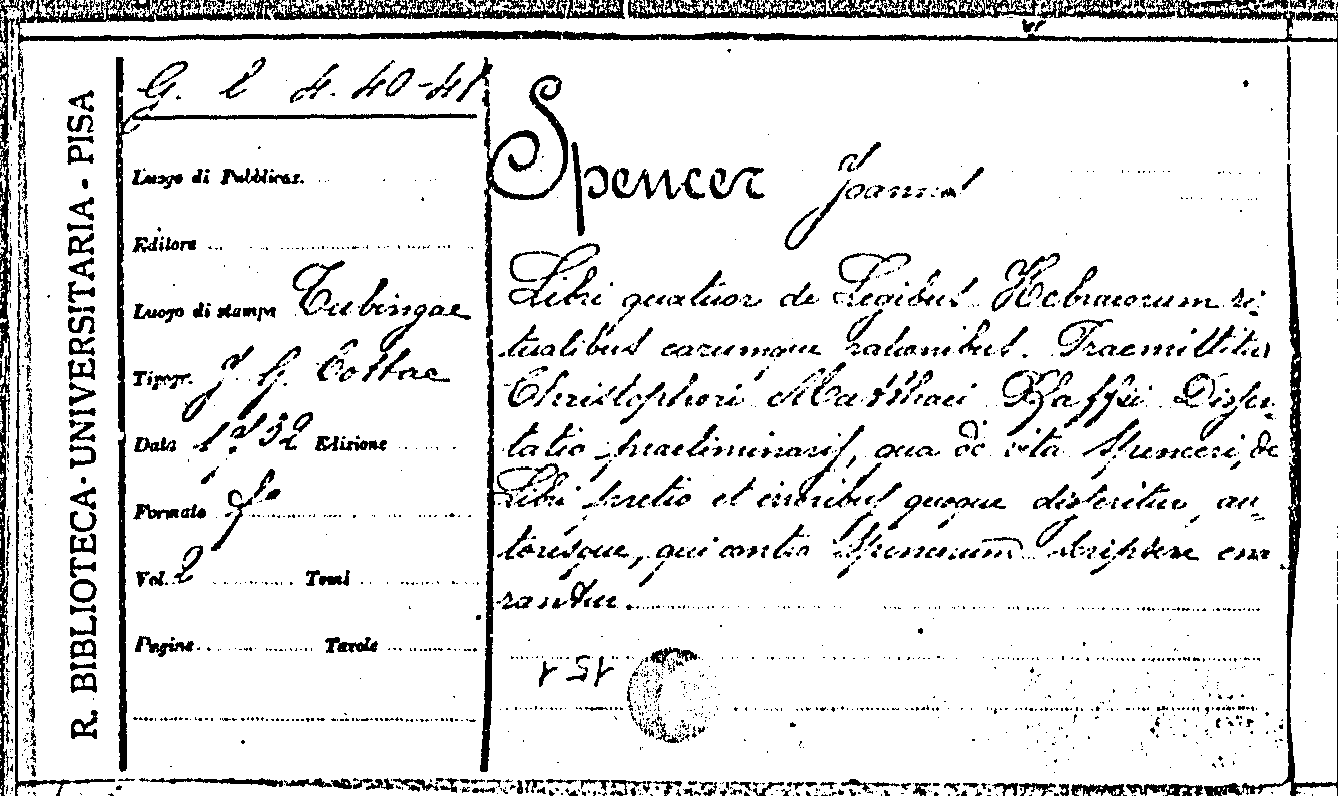 R. BIBLIOTECA-UNIVERSITARIA - PISA
G. l 4. 40-41
Luogo di Pubblicaz.
Editore
Luogo di stampa Tubingae
Tipogr. J. G. Cottae
Data 1732 Edizione
Formato f°
Vol. 2 Tomi
Pagine Tavole
Spencer Joannes
Libri quatuor de Legibus Hebraeorum ri-
tualibus earumque rationibus. Praemittitur
Christophori Matthaei Pfaffii Disser-
tatio praeliminaris, qua de vita Spenceri, de
Libri pretio et erroribus quoque disseritur, au-
toresque, qui contra Spencerum scripsere enar
rantur.